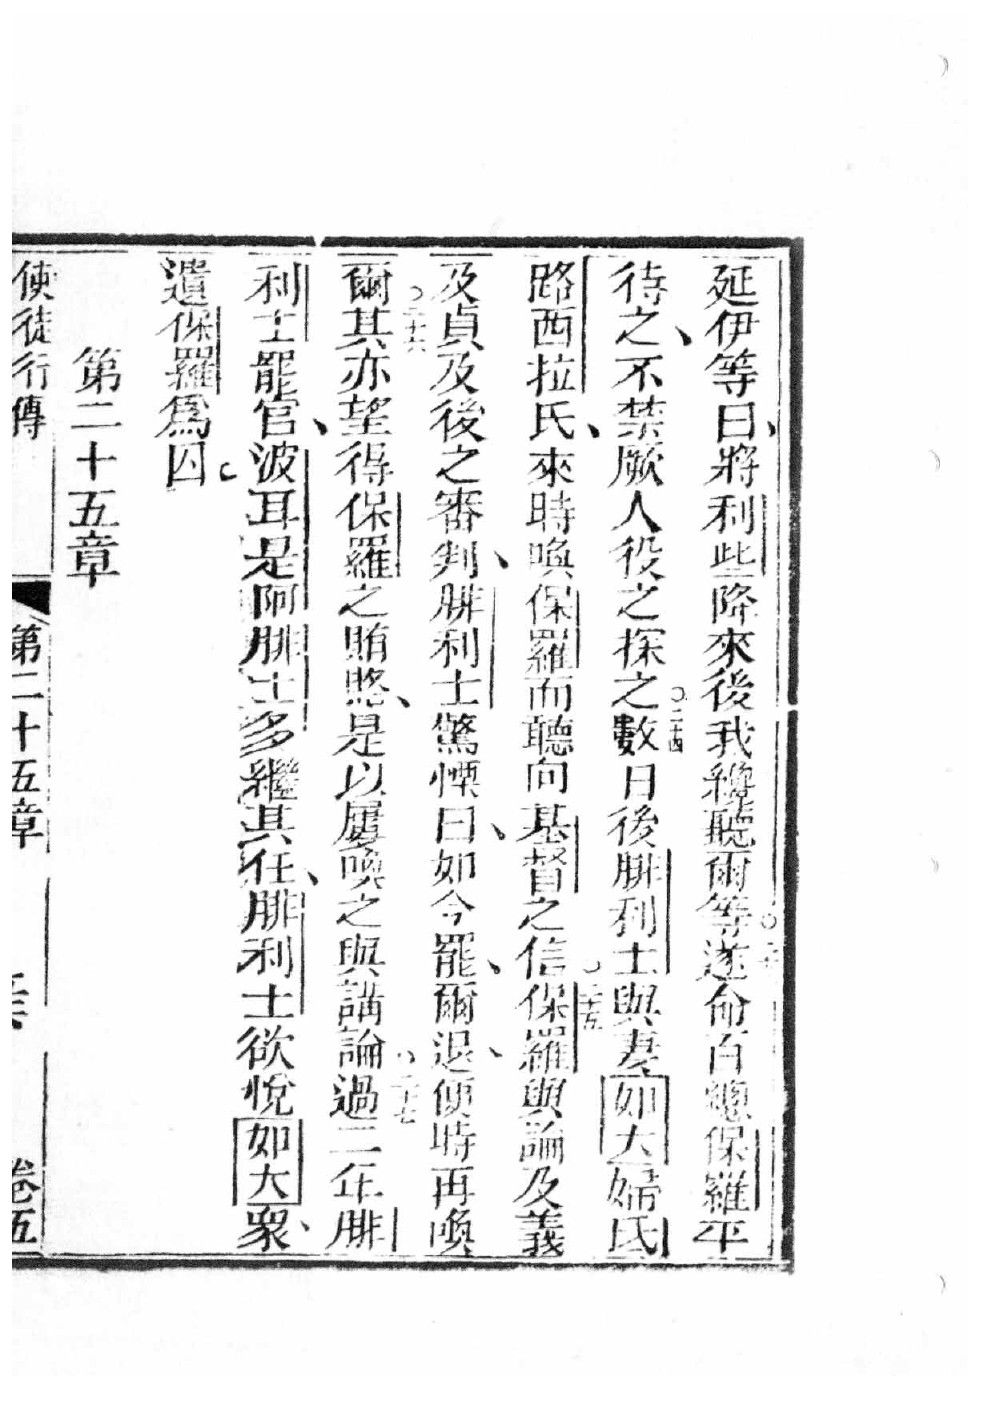 延伊等曰將利此降來後我纔聽爾等○遂命百總保羅平
待之不禁厥人役之探之○二十四數日後腓利士與妻如大婦氏
路西拉氏來時喚保羅而聽向基督之信○二十五保羅與論及義
及貞及後之審判腓利士驚慄曰如今罷爾退便時再喚
爾○二十六其亦望得保羅之賄賂是以屢喚之與講論○二十七過二年腓
利士罷官波耳是阿腓士多繼其任腓利士欲悅如大衆
遺保羅爲囚
第二十五章
使徒行傳 第二十五章 卷五